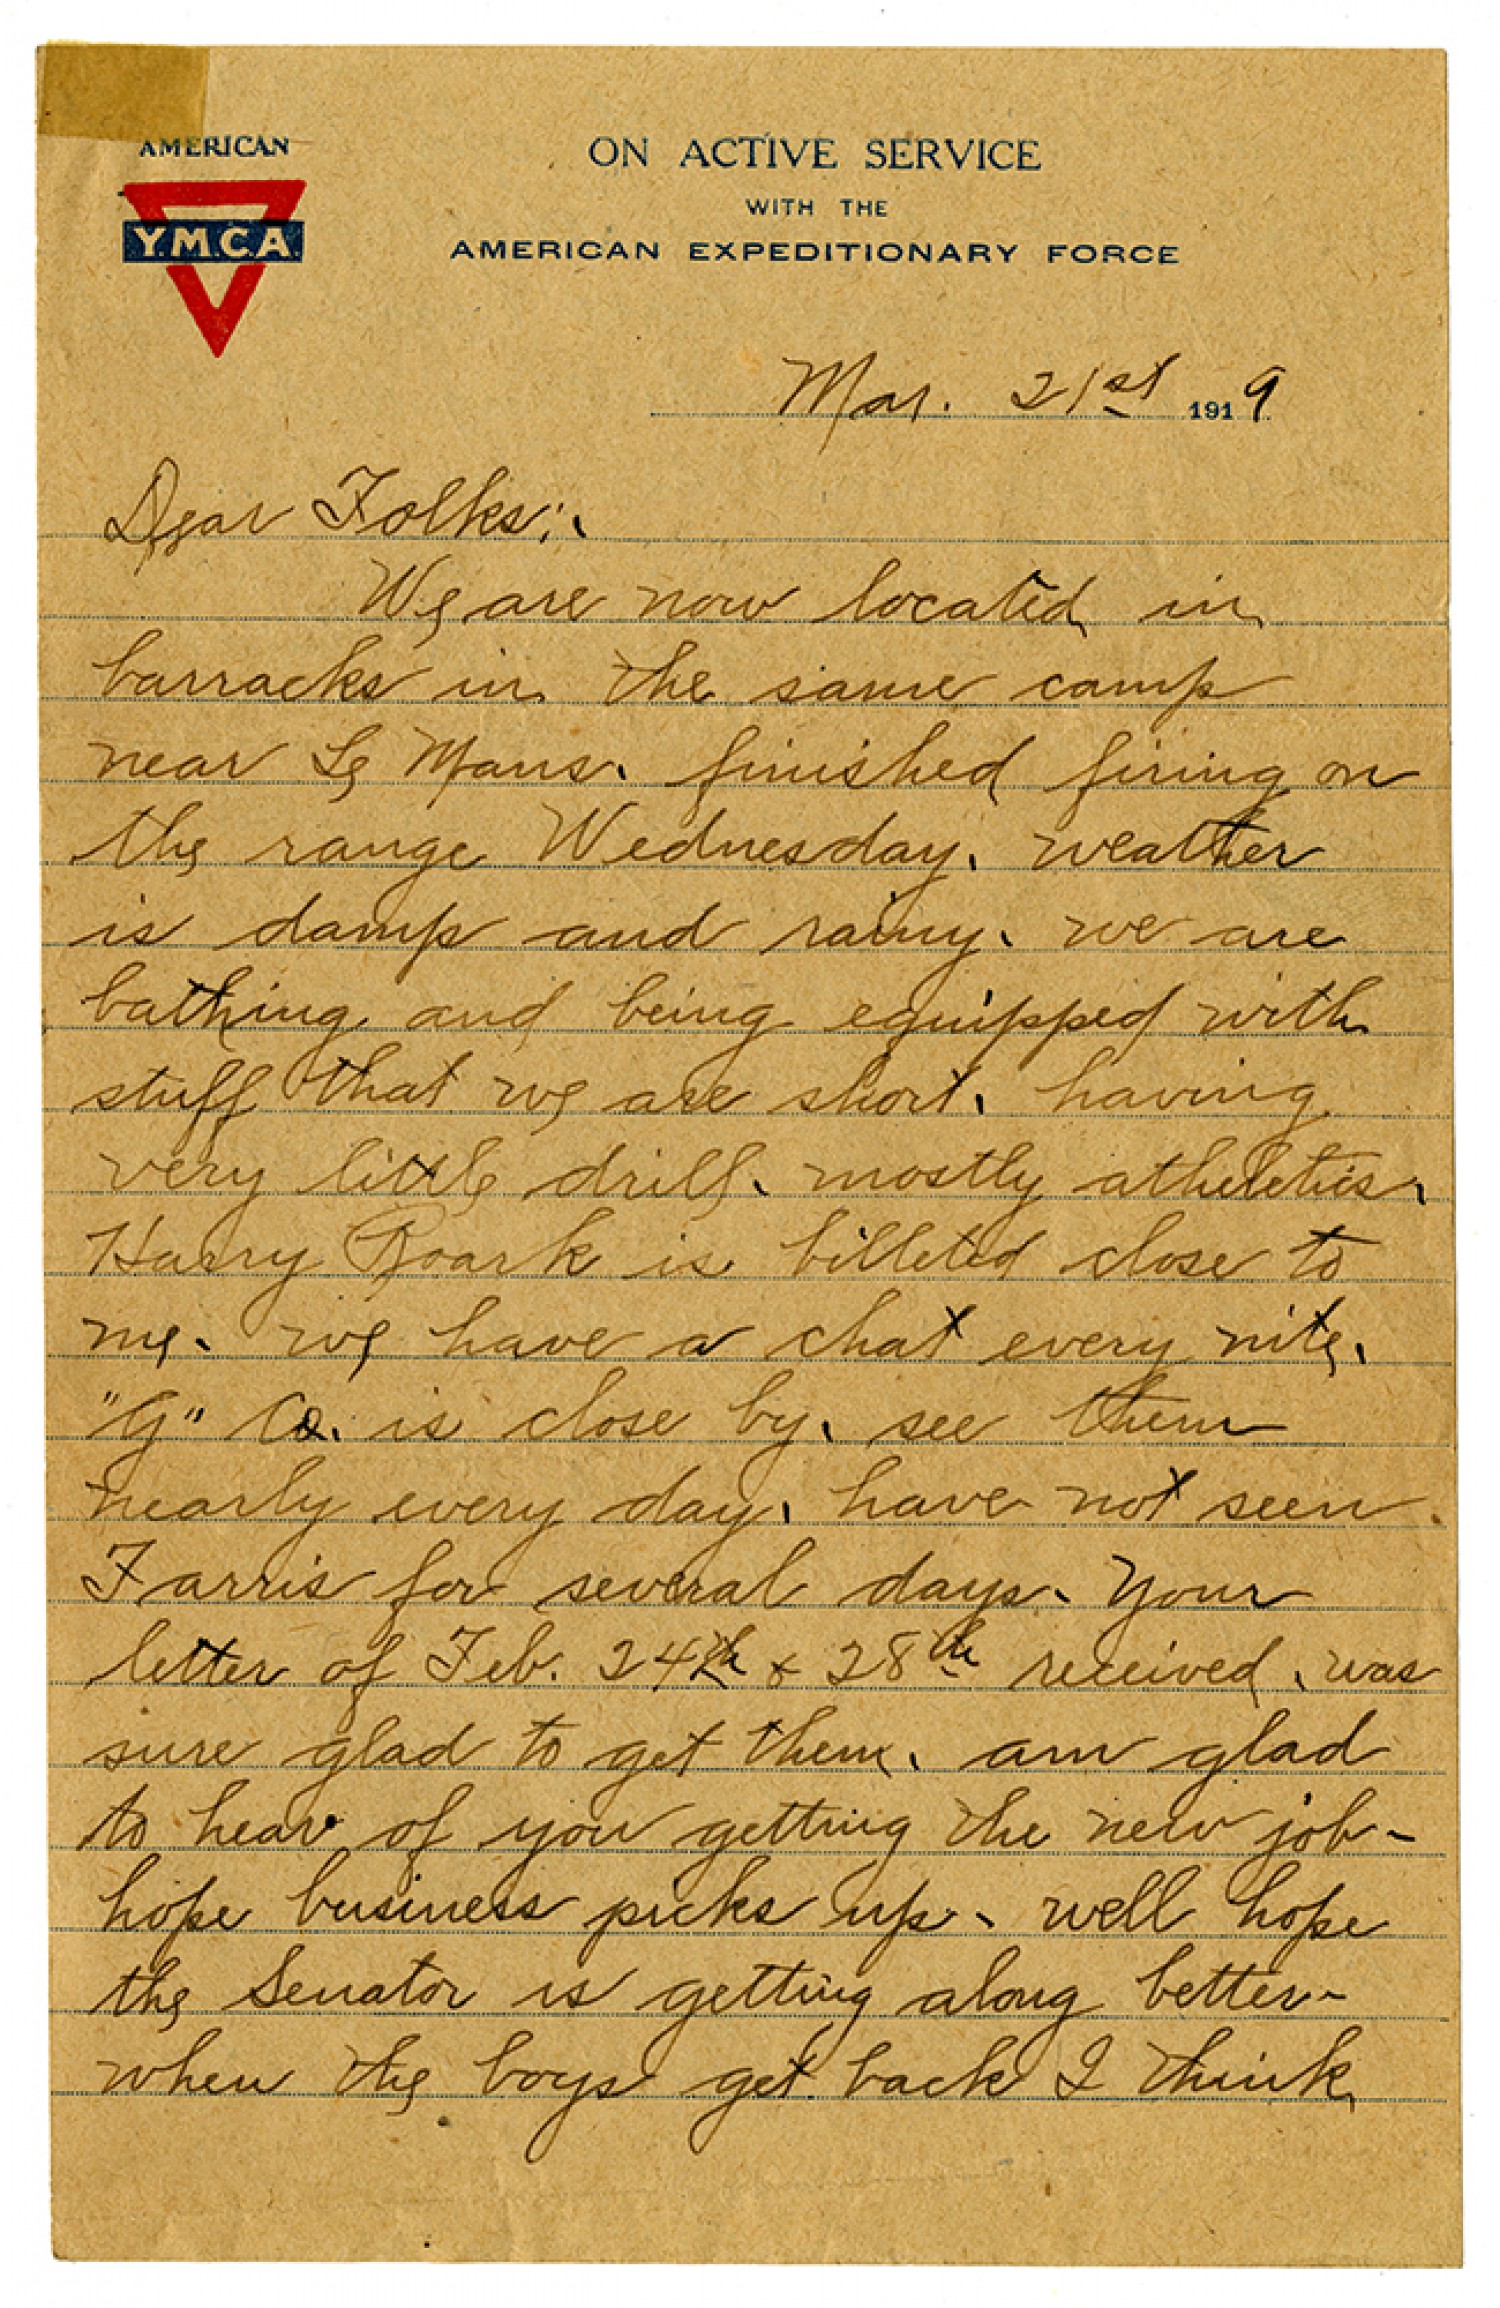 AMERICAN
Y.M.C.A.
ON ACTIVE SERVICE
WITH THE
AMERICAN EXPEDITIONARY FORCE
Mar. 21st 1919
Dear Folks:.
We are now located in
barracks in the same camp
near Le Mans. finished firing on
the range Wednesday. weather
is damp and rainy. we are
bathing and being equipped with
stuff that we are short. having
very little drill. mostly atheletics.
Harry Roark is billeted close to
me. we have a chat every nite.
"G" Co. is close by. see them
nearly every day. have not seen
Farris for several days. Your
letter of Feb. 24th & 28th received. was
sure glad to get them. am glad
to hear of you getting the new job-
hope business picks up- well hope
the Senator is getting along better-
when the boys get back I think